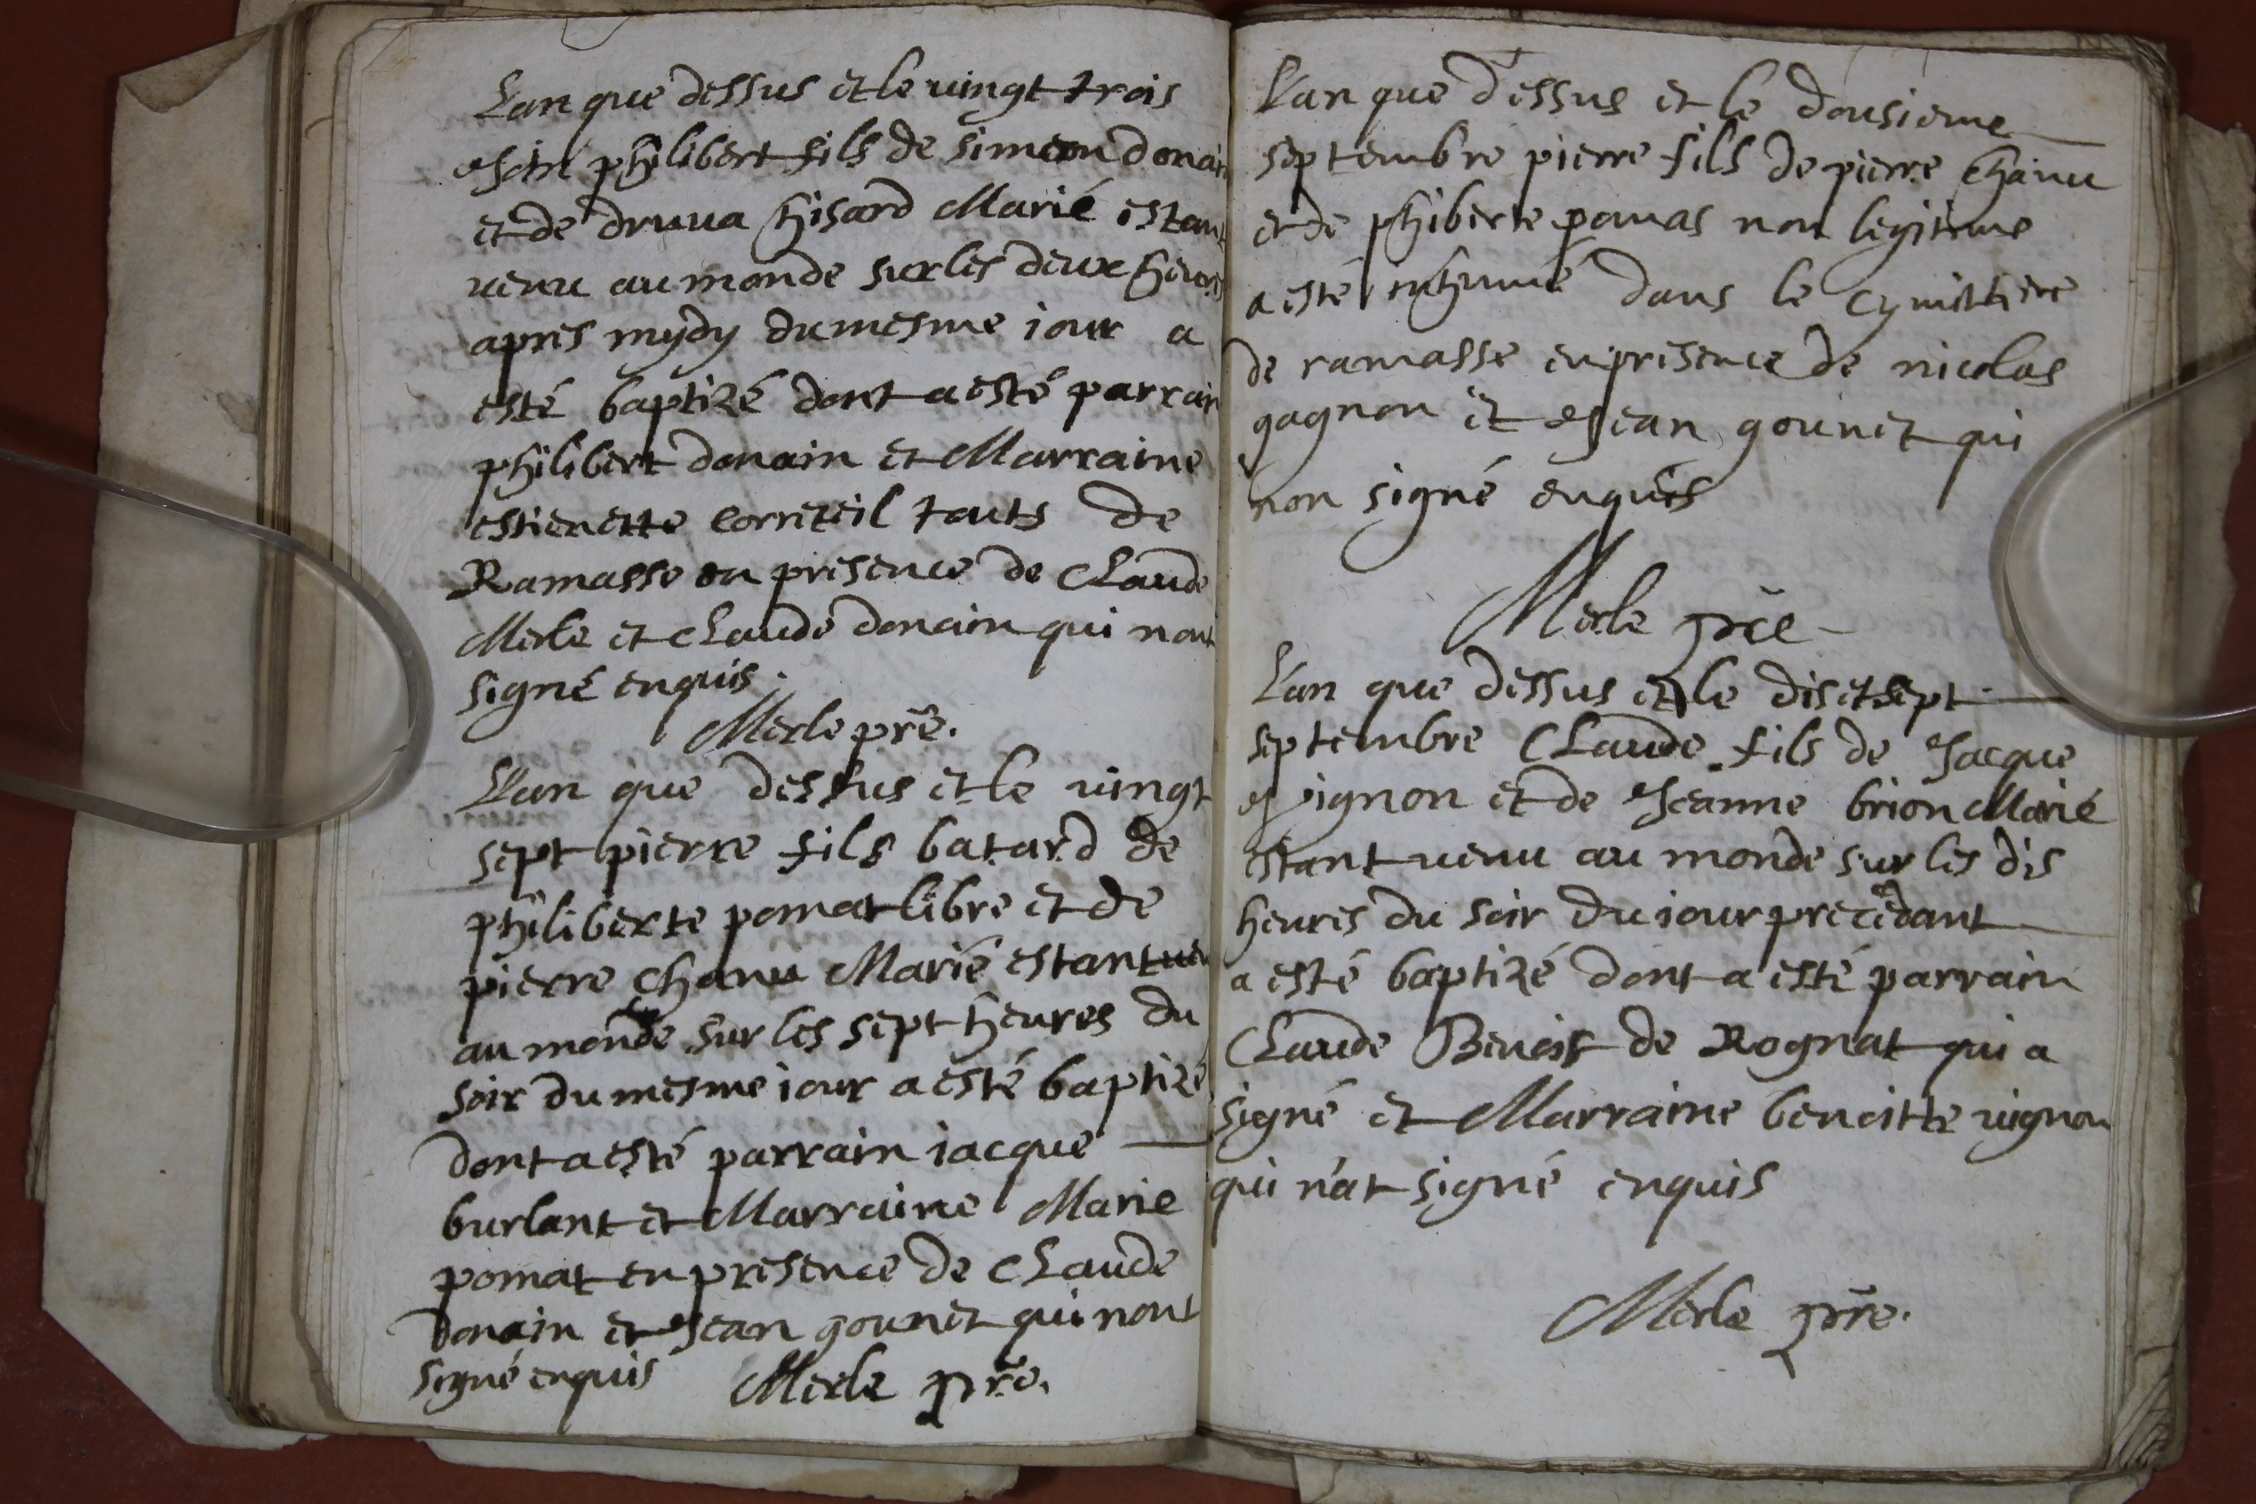 L'an que dessus et le uingt trois
philibert fils de simeon donain
et de druua Marié estant
uenu au monde sur les deux heures
apres mydy du mesme iour a
esté baptizé dont a esté parrain
philibert donain et Marraine
estienette Correteil touts de
Ramasse en presence de Claude
Merle et Claude donain qui nont
signé enquis.
Merle pre.
L'an que dessus et le uingt
sept pierre fils batard de
philiberte pomat libre et de
pierre Chanu Marié estant uen
au monde sur les sept heures du
soir du mesme iour a esté baptizé
dont a esté parrain iacque
burlant et Marraine Marie
pomat en presence de Claude
donain et Jean gounet qui nont
signé enquis Merle pre.
L'an que dessus et le dousieme
septembre pierre fils de pierre Chanu
et de phiberte pomas non legitime
a esté inhumé dans le Cymittiere
de ramasse en presence de nicolas
gagnon et Jean gounet qui
non signé enquis
Merle pre
L'an que dessus et le disetsept
septembre Claude fils de Jacque
uignon et de Jeanne brion Marié
estant uenu au monde sur les dis
heures du soir du iour precedant
a esté baptizé dont a esté parrain
Claude Benoist de Rognat qui a
signé et Marraine benoitte uignon
qui n'at signé enquis
Merle pre.